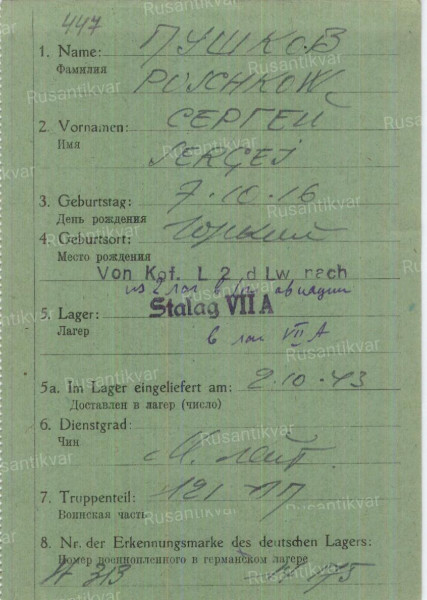 447
1. Name: ПУШКОВ
Фамилия
PUSCHKOW
2. Vornamen: СЕРГЕЙ
Имя
SERGEJ
3. Geburtstag: 7·10·16
День рождения
4. Geburtsort: Горький
Место рождения
Von Kgf. L 2 d Lw nach
из 2 лаг авиации
5. Lager: Stalag VII A
Лагер
в лаг VII A
5a. Im Lager eingeliefert am: 2·10·43
Доставлен в лагер (число)
6. Dienstgrad:
Чин
Мл. лейт.
7. Truppenteil: 121 АП
Воинская часть
8. Nr. der Erkennungsmarke des deutschen Lagers:
Номер военнопленного в германском лагере
Rusantikvar